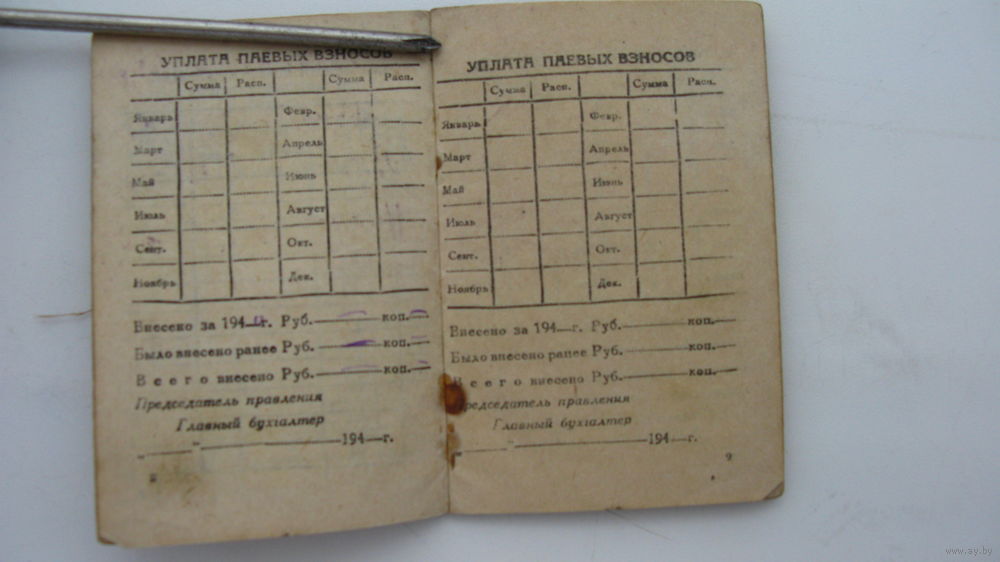 УПЛАТА ПАЕВЫХ ВЗНОСОВ
Сумма Расп. Сумма Расп.
Январь Февр.
Март Апрель
Май Июнь
Июль Август
Сент. Окт.
Ноябрь Дек.
Внесено за 194 г. Руб. коп.
Было внесено ранее Руб. коп.
Всего внесено Руб. коп.
Председатель правления
Главный бухгалтер
„ “ 194 г.
8
УПЛАТА ПАЕВЫХ ВЗНОСОВ
Сумма Расп. Сумма Расп.
Январь Февр.
Март Апрель
Май Июнь
Июль Август
Сент. Окт.
Ноябрь Дек.
Внесено за 194 г. Руб. коп.
Было внесено ранее Руб. коп.
Всего внесено Руб. коп.
Председатель правления
Главный бухгалтер
„ “ 194 г.
9
www.ay.by